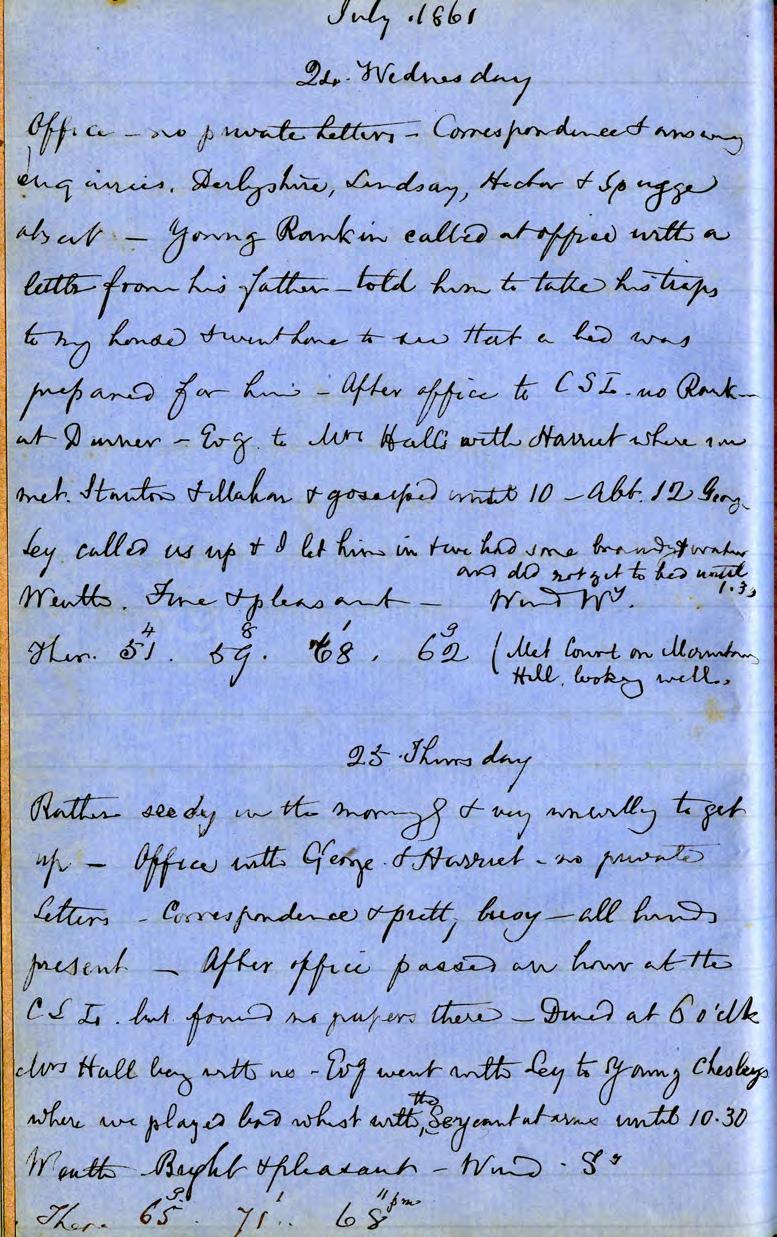 July 1861
24. Wednesday
Office - no private letters - Correspondence & answg
enquiries. Derbyshire, Lindsay, Hector & Spugge
absent - Young Rankin called at office with a
letter from his father - told him to take his traps
to my house & went home to see that a bed was
prepared for him - After office to C S I - no Rank-
at Dinner - Evg to Mrs Hall's with Harriet where we
met. Stanton & Mahar & gossiped until 10 - Abt. 12 Georg
Ley called us up & I let him in & we had some brandy & water
and did not get to bed until
1.30
Weath. Fine & pleasant - Wind Wy.
4 8 1 9
Ther. 51. 59. 68. 62 (Met Court on Mountain
Hill. looking well.
25. Thursday
Rather seedy in the morng & very unwillg to get
up - Office with George & Harriet - no private
Letters - Correspondence & pretty busy - all hands
present - After office passed an hour at the
C L I. but found no papers there - Dined at 6 o'clk
Mrs Hall beg with us - Evg went with Ley to Young Chesleys
where we played bad whist with the Serjeant at arms until 10.30
Weath Bright & pleasant - Wind - Sy
9 1 11 pm
Ther. 65. 71. 68